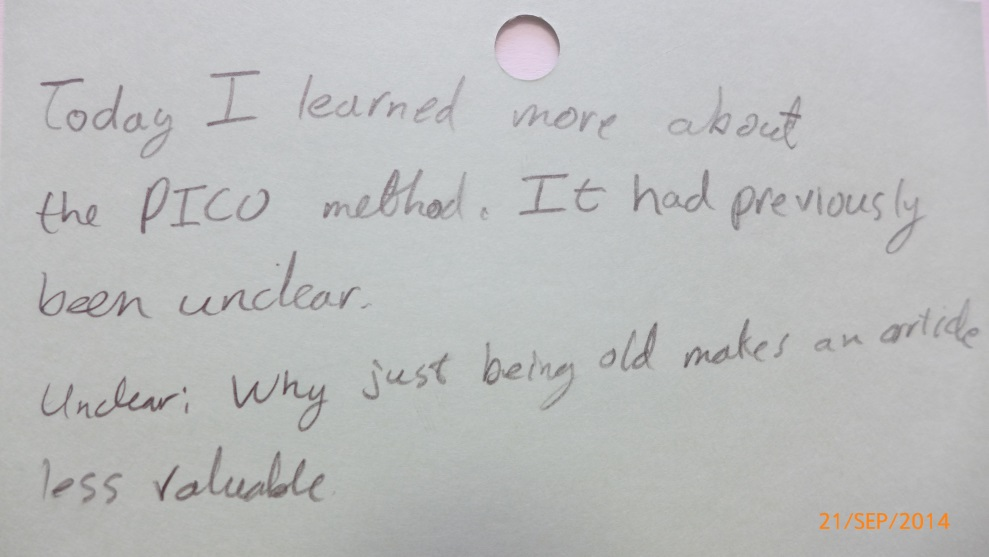 Today I learned more about
the PICO method. It had previously
been unclear.
Unclear: Why just being old makes an article
less valuable
21/SEP/2014